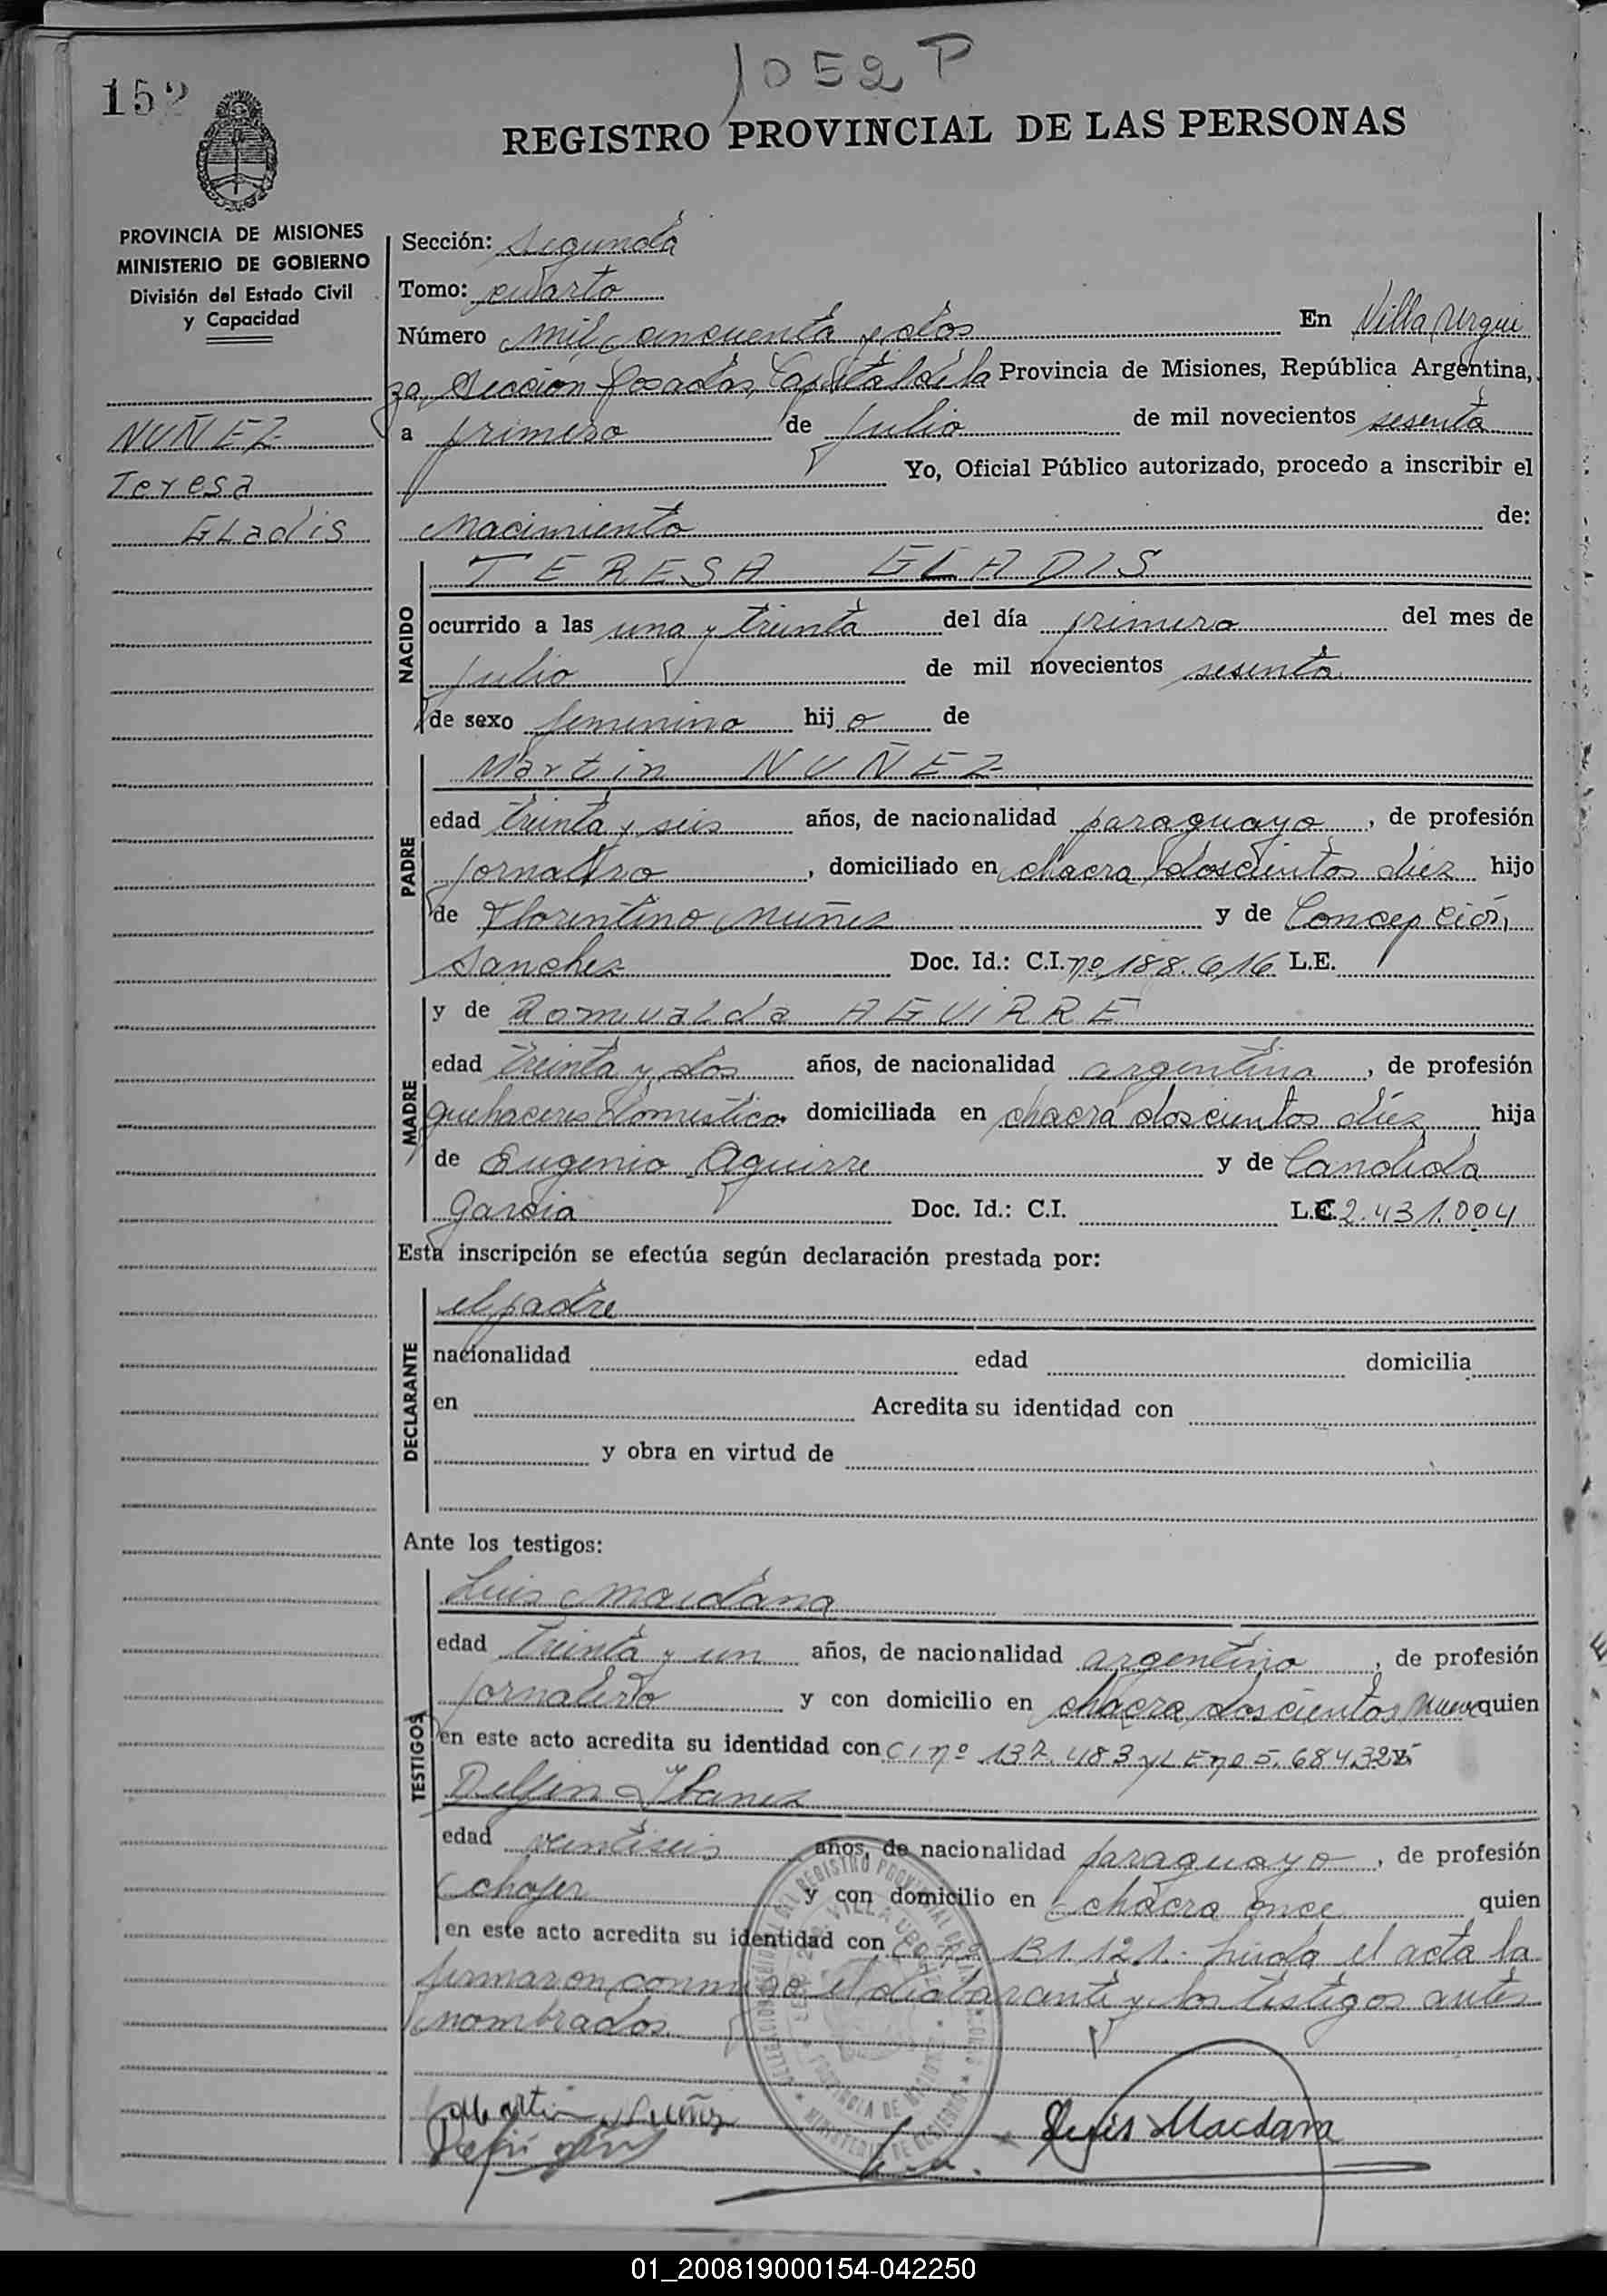 1052 P
152
REGISTRO PROVINCIAL DE LAS PERSONAS
PROVINCIA DE MISIONES
MINISTERIO DE GOBIERNO
División del Estado Civil
y Capacidad
NUÑEZ
Teresa
Gladis
Sección: Segunda
Tomo: cuarto
Número mil cincuenta y dos En Villa Urqui
za, Sección Posadas, Capital de la Provincia de Misiones, República Argentina,
a primero de Julio de mil novecientos sesenta
Yo, Oficial Público autorizado, procedo a inscribir el
Nacimiento de:
NACIDO
TERESA GLADIS
ocurrido a las una y treinta del día primero del mes de
Julio de mil novecientos sesenta
de sexo femenino hijo de
PADRE
Martin NUÑEZ
edad treinta y seis años, de nacionalidad paraguayo, de profesión
jornalero, domiciliado en chacra doscientos diez hijo
de Florentino Nuñez y de Concepción
Sanchez Doc. Id.: C.I. nº 188.616 L.E.
MADRE
y de Romualda AGUIRRE
edad treinta y dos años, de nacionalidad argentina, de profesión
quehaceres domestico domiciliada en chacra doscientos diez hija
de Eugenio Aguirre y de Candida
Garcia Doc. Id.: C.I. L.C. 2.431.004
Esta inscripción se efectúa según declaración prestada por:
DECLARANTE
el padre
nacionalidad edad domicilia
en Acredita su identidad con
y obra en virtud de
Ante los testigos:
TESTIGOS
Luis Maidana
edad treinta y un años, de nacionalidad argentino, de profesión
jornalero y con domicilio en chacra doscientos nueve quien
en este acto acredita su identidad con CI nº 137.483 y L E nº 5.684.32
Delfin Ybanez
edad veintiseis años, de nacionalidad paraguayo, de profesión
chofer y con domicilio en chacra once quien
en este acto acredita su identidad con CI nº 131.121.- Leida el acta la
firmaron conmigo el declarante y los testigos antes
nombrados.
DELEGACION DEL REGISTRO PROVINCIAL DE LAS PERSONAS
VILLA URQUIZA
PROVINCIA DE MISIONES
MINISTERIO DE GOBIERNO
Martin Nuñez
Luis Maidana
01_200819000154-042250